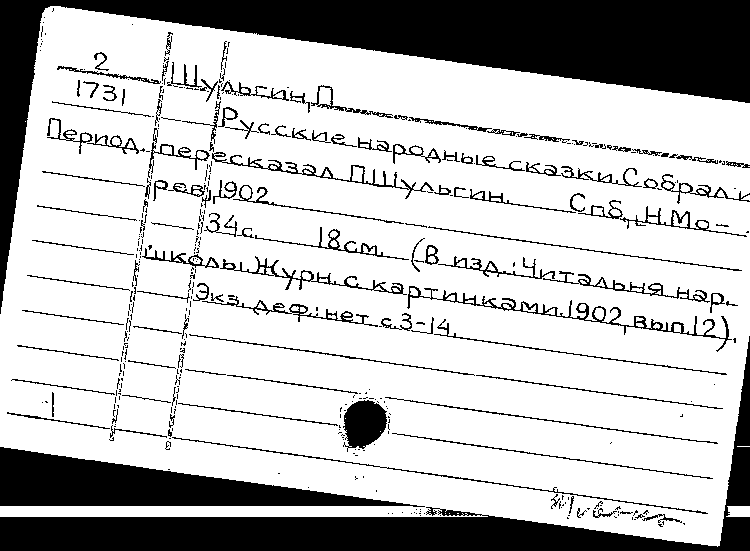 2
1731
Период.
Шульгин, П
Русские народные сказки. Собрал и
пересказал П.Шульгин. Спб., Н.Мо-
рев, 1902.
34с. 18см. (В изд.: Читальня нар.
школы. Журн. с картинками. 1902, вып. 12).
Экз. деф.: нет с. 3-14.
1